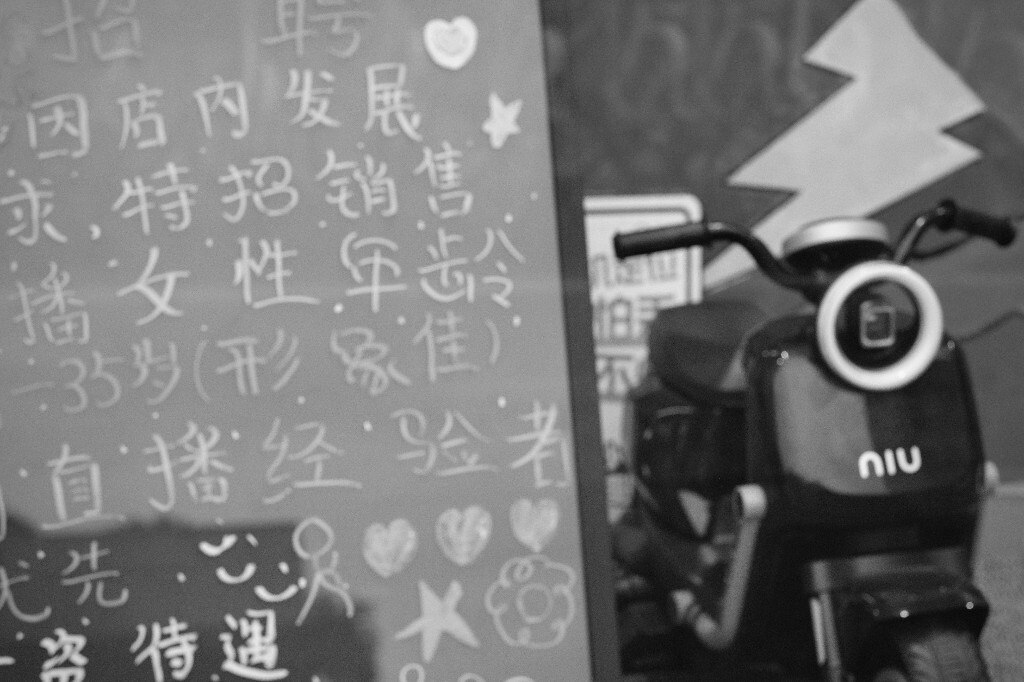 招 聘
因店内发展
求,特招销售
播 女性 年龄
-35岁(形象佳)
直播经验者
优先
资待遇
niu